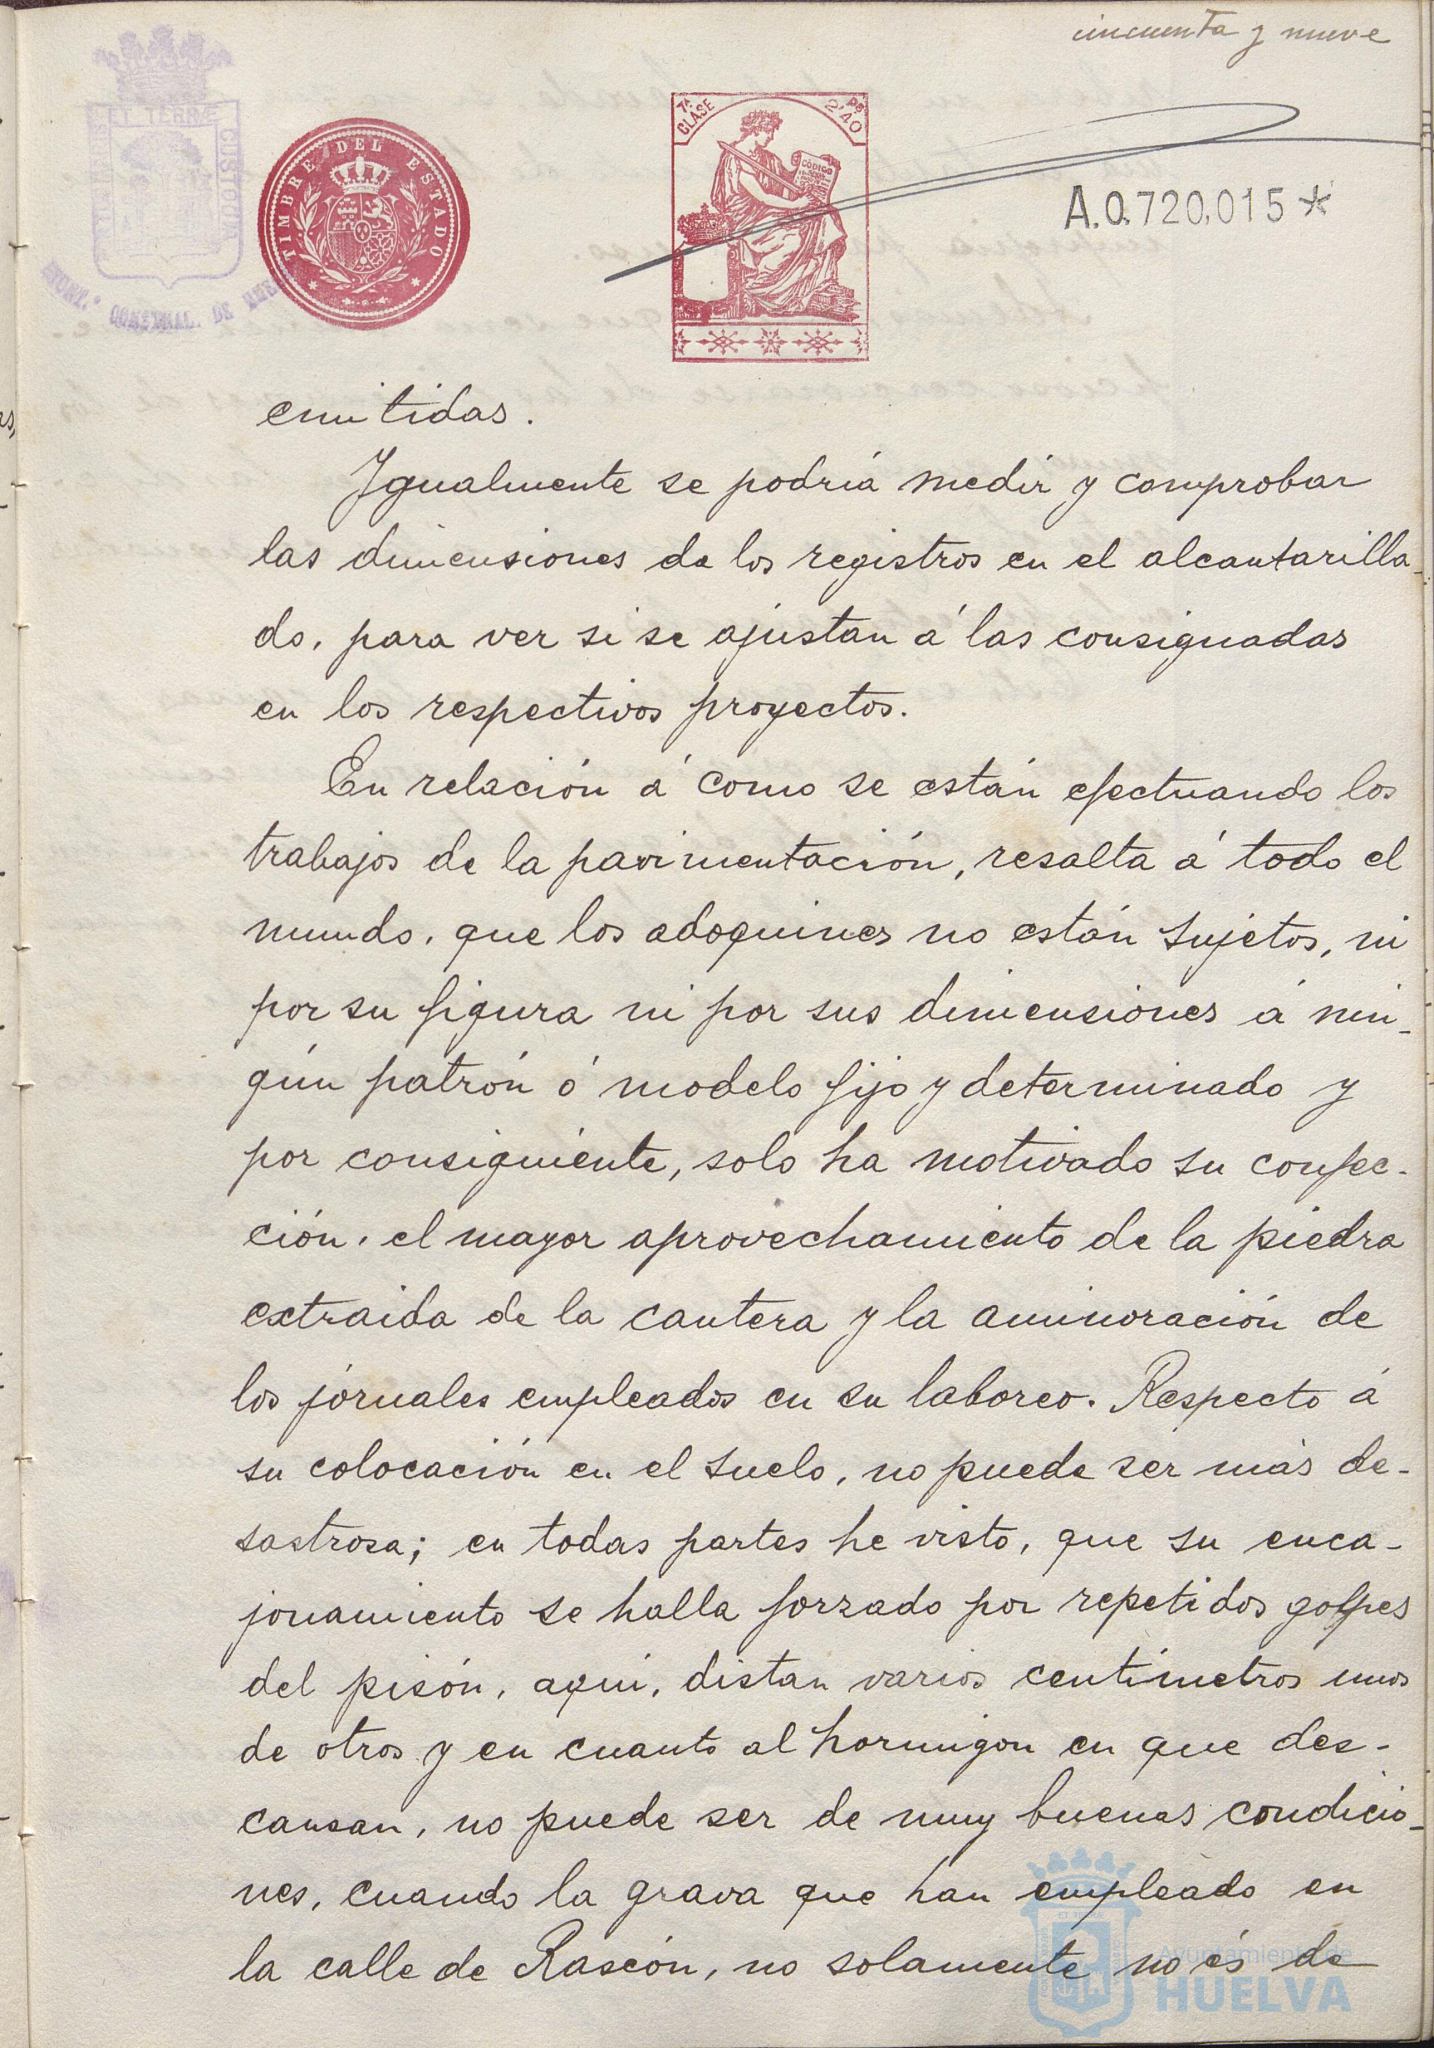 cincuenta y nueve
7ª CLASE
Ps 2'40
CÓDIGO
TIMBRE DEL ESTADO
A.0.720,015*
emitidas.
Igualmente se podría medir y comprobar
las dimensiones de los registros en el alcantarilla-
do, para ver si se ajustan á las consignadas
en los respectivos proyectos.
En relación á como se están efectuando los
trabajos de la pavimentación, resalta á todo el
mundo, que los adoquines no están sujetos, ni
por su figura ni por sus dimensiones á nin-
gún patrón ó modelo fijo y determinado y
por consiguiente, solo ha motivado su confec-
ción, el mayor aprovechamiento de la piedra
extraida de la cantera y la aminoración de
los jornales empleados en su laboreo. Respecto á
su colocación en el suelo, no puede ser más de-
sastrosa; en todas partes he visto, que su enca-
jonamiento se halla forzado por repetidos golpes
del pisón, aquí, distan varios centímetros unos
de otros y en cuanto al hormigon en que des-
cansan, no puede ser de muy buenas condicio-
nes, cuando la grava que han empleado en
la calle de Rascón, no solamente no és de
Ayuntamiento de
HUELVA